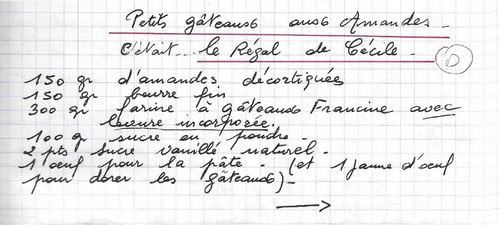 Petits gâteaux aux Amandes.
C'était... le Régal de Cécile.
150 gr d'amandes décortiquées
150 gr beurre fin
300 gr farine à gâteaux Francine avec
levure incorporée.
100 gr sucre en poudre.
2 pts sucre vanillé naturel.
1 oeuf pour la pâte. (et 1 jaune d'oeuf
pour dorer les gâteaux).